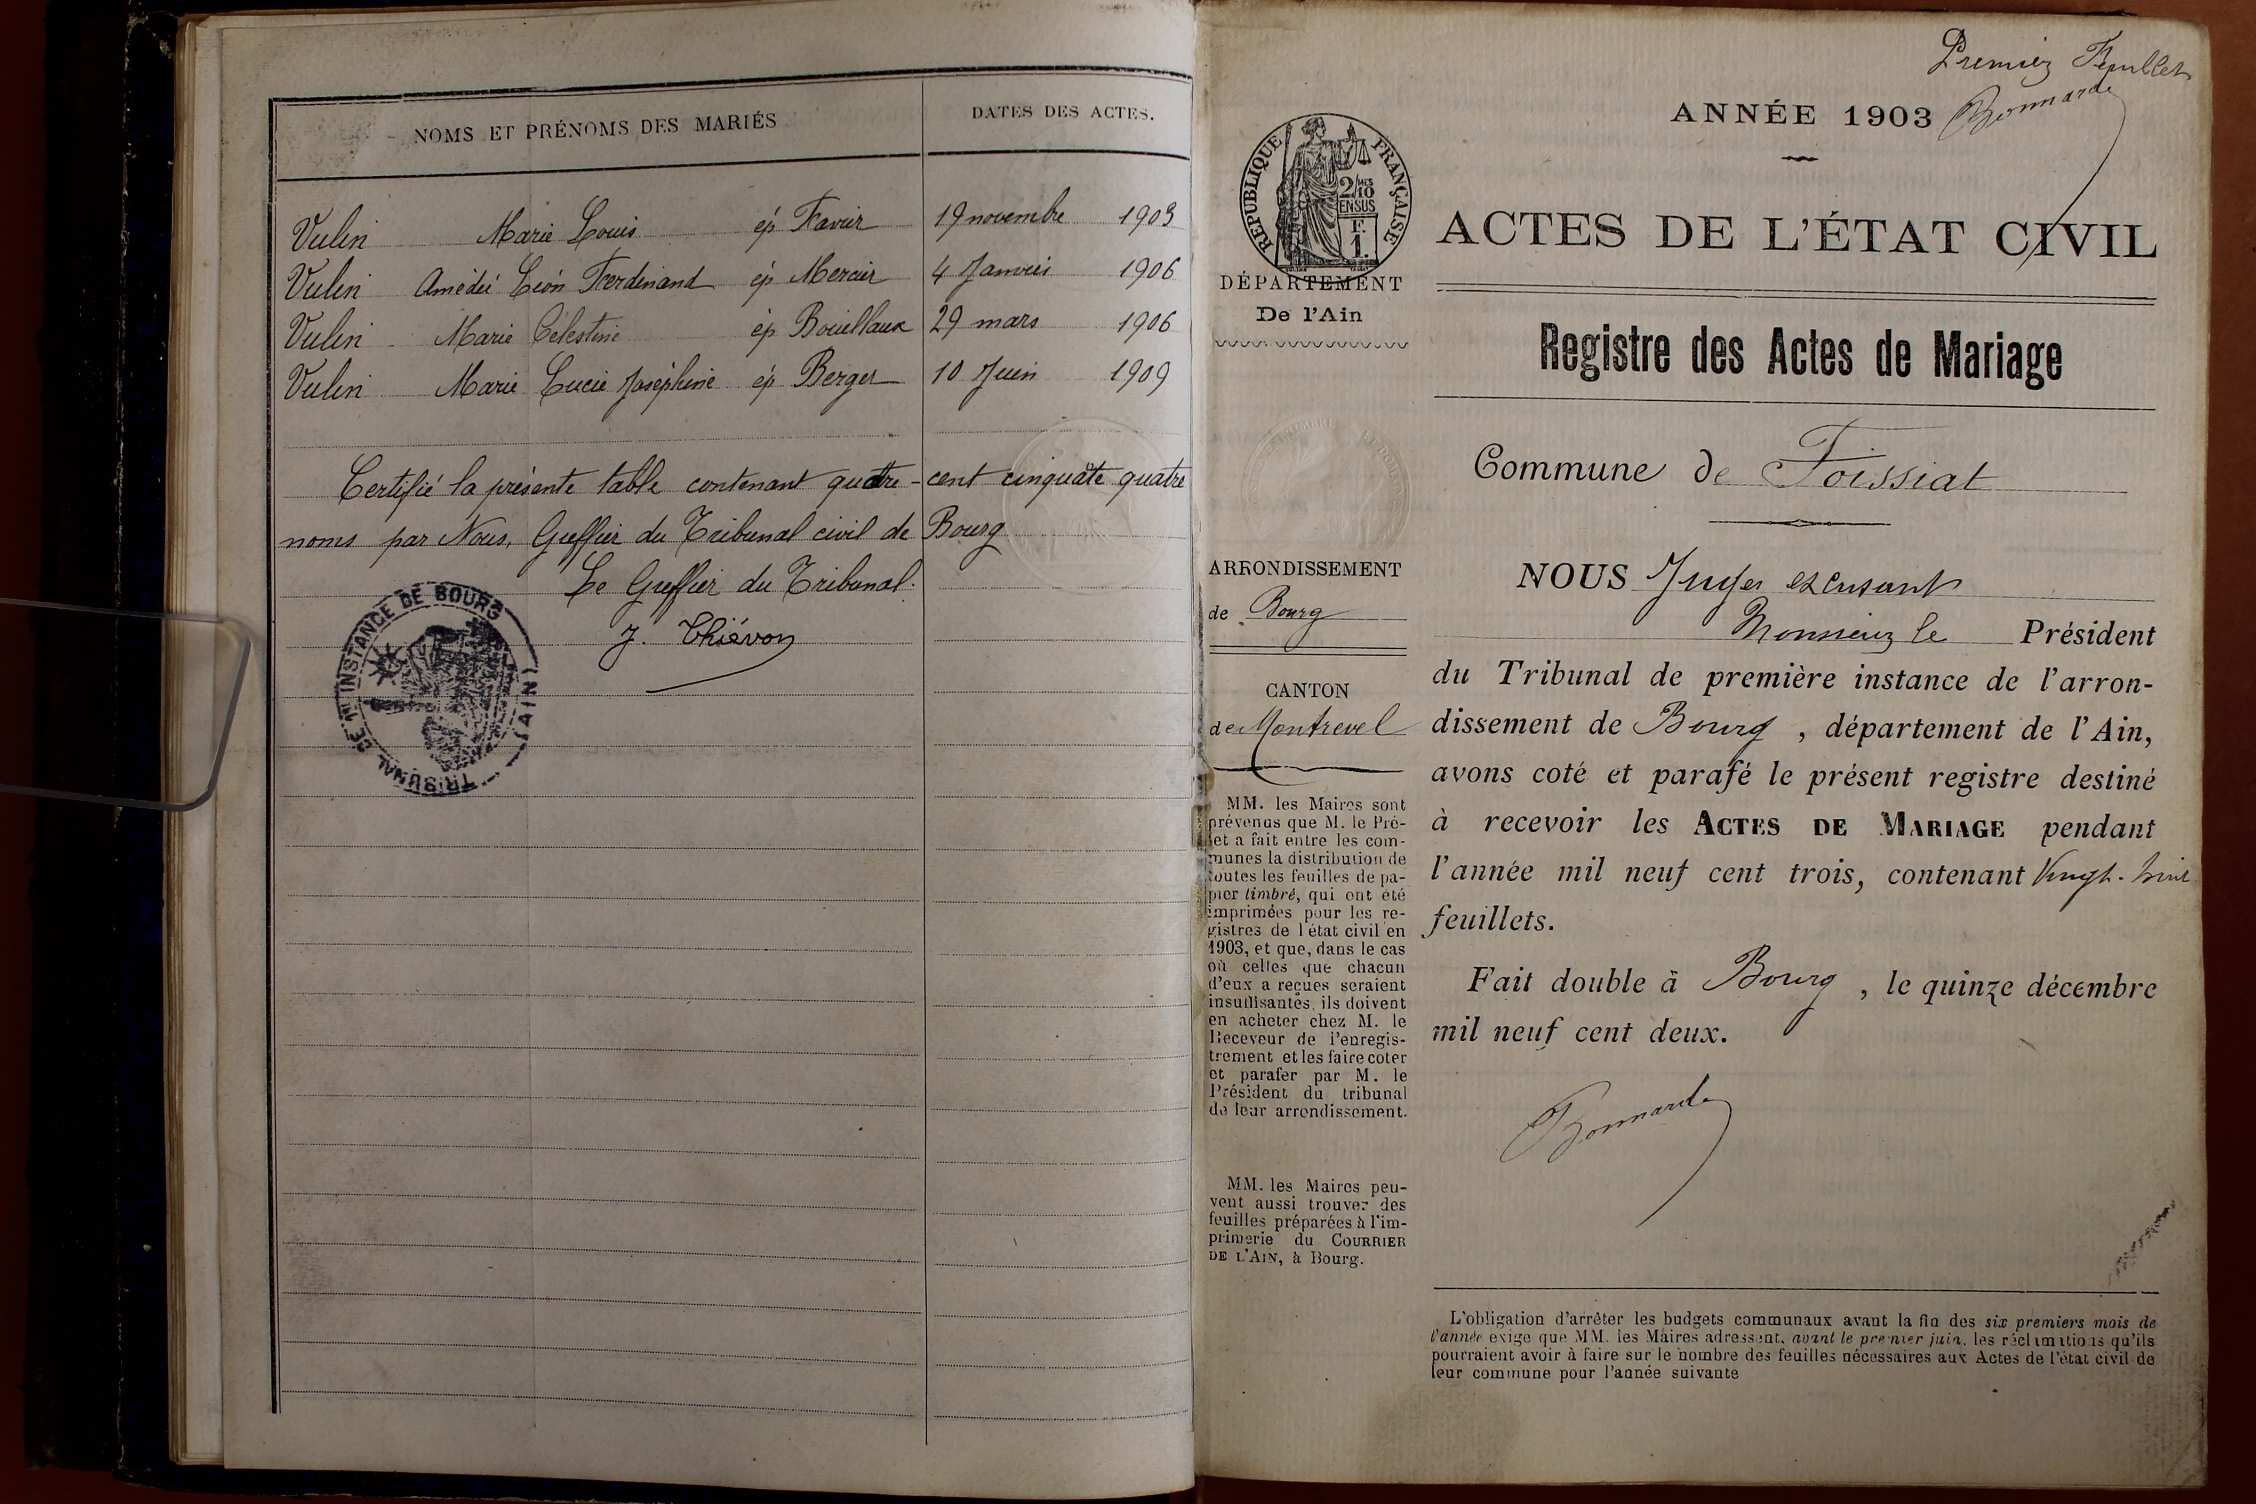 NOMS ET PRÉNOMS DES MARIÉS
DATES DES ACTES.
Vulin Marie Louis ép Favier 19 novembre 1903
Vulin Amédée Léon Ferdinand ép Mercier 4 Janvier 1906
Vulin Marie Célestine ép Bouillaux 29 mars 1906
Vulin Marie Lucie Joséphine ép Berger 10 Juin 1909
Certifié la présente table contenant quatre-cent cinquate quatre
noms par Nous, Greffier du Tribunal civil de Bourg
Le Greffier du Tribunal.
J. Thiévon
TRIBUNAL DE 1re INSTANCE DE BOURG (AIN)
Premier Feuillet
Bonnarde
ANNÉE 1903
RÉPUBLIQUE FRANÇAISE
2/10 MES
EN SUS
F.
1.
DÉPARTEMENT
De l'Ain
ACTES DE L'ÉTAT CIVIL
Registre des Actes de Mariage
Commune de Foissiat
ARRONDISSEMENT
de Bourg
CANTON
de Montrevel
MM. les Maires sont
prévenus que M. le Pré-
fet a fait entre les com-
munes la distribution de
toutes les feuilles de pa-
pier timbré, qui ont été
imprimées pour les re-
gistres de l'état civil en
1903, et que, dans le cas
où celles que chacun
d'eux a reçues seraient
insuffisantes, ils doivent
en acheter chez M. le
Receveur de l'enregis-
trement et les faire coter
et parafer par M. le
Président du tribunal
de leur arrondissement.
MM. les Maires peu-
vent aussi trouver des
feuilles préparées à l'im-
primerie du COURRIER
DE L'AIN, à Bourg.
NOUS Juge excusant
Monsieur le Président
du Tribunal de première instance de l'arron-
dissement de Bourg, département de l'Ain,
avons coté et parafé le présent registre destiné
à recevoir les ACTES DE MARIAGE pendant
l'année mil neuf cent trois, contenant Vingt-huit
feuillets.
Fait double à Bourg, le quinze décembre
mil neuf cent deux.
Bonnarde
L'obligation d'arrêter les budgets communaux avant la fin des six premiers mois de
l'année exige que MM. les Maires adressent, avant le premier juin, les réclamations qu'ils
pourraient avoir à faire sur le nombre des feuilles nécessaires aux Actes de l'état civil de
leur commune pour l'année suivante